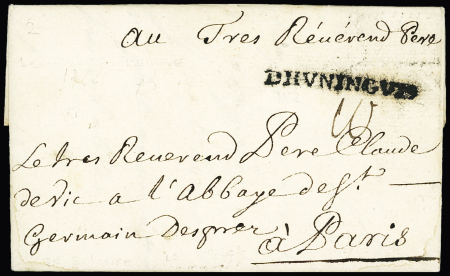 au Tres Révérend Pere
DHVNINGVE
Le tres Reverend Pere Claude
de vic a l'abbaye de St
Germain Desprez
à Paris